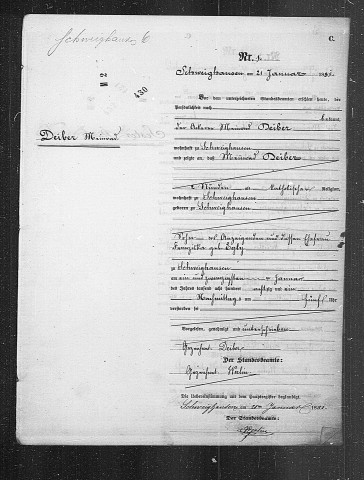 Schweighausen
C.
Nr. 1.
430
Schweighausen am 21 Januar 1881.
Vor dem unterzeichneten Standesbeamten erschien heute, der
Persönlichkeit nach
kannt
der Ackerer Meinrad Deiber
Deiber Meinrad
wohnhaft zu Schweighausen
und zeigte an, daß Meinrad Deiber
Stunden
Katholischer Religion,
wohnhaft zu Schweighausen
geboren zu Schweighausen
Sohn des Anzeigenden und dessen Ehefrau
Franziska geb.
zu Schweighausen
am ein und zwanzigsten Januar
des Jahres tausend acht hundert achtzig und ein
Nachmittags um fünf Uhr
verstorben sei
Vorgelesen, genehmigt und unterschrieben
Gezeichnet Deiber
Der Standesbeamte:
Gezeichnet
Die Uebereinstimmung mit dem Hauptregister beglaubigt.
Schweighausen Januar 1881.
Der Standesbeamte: